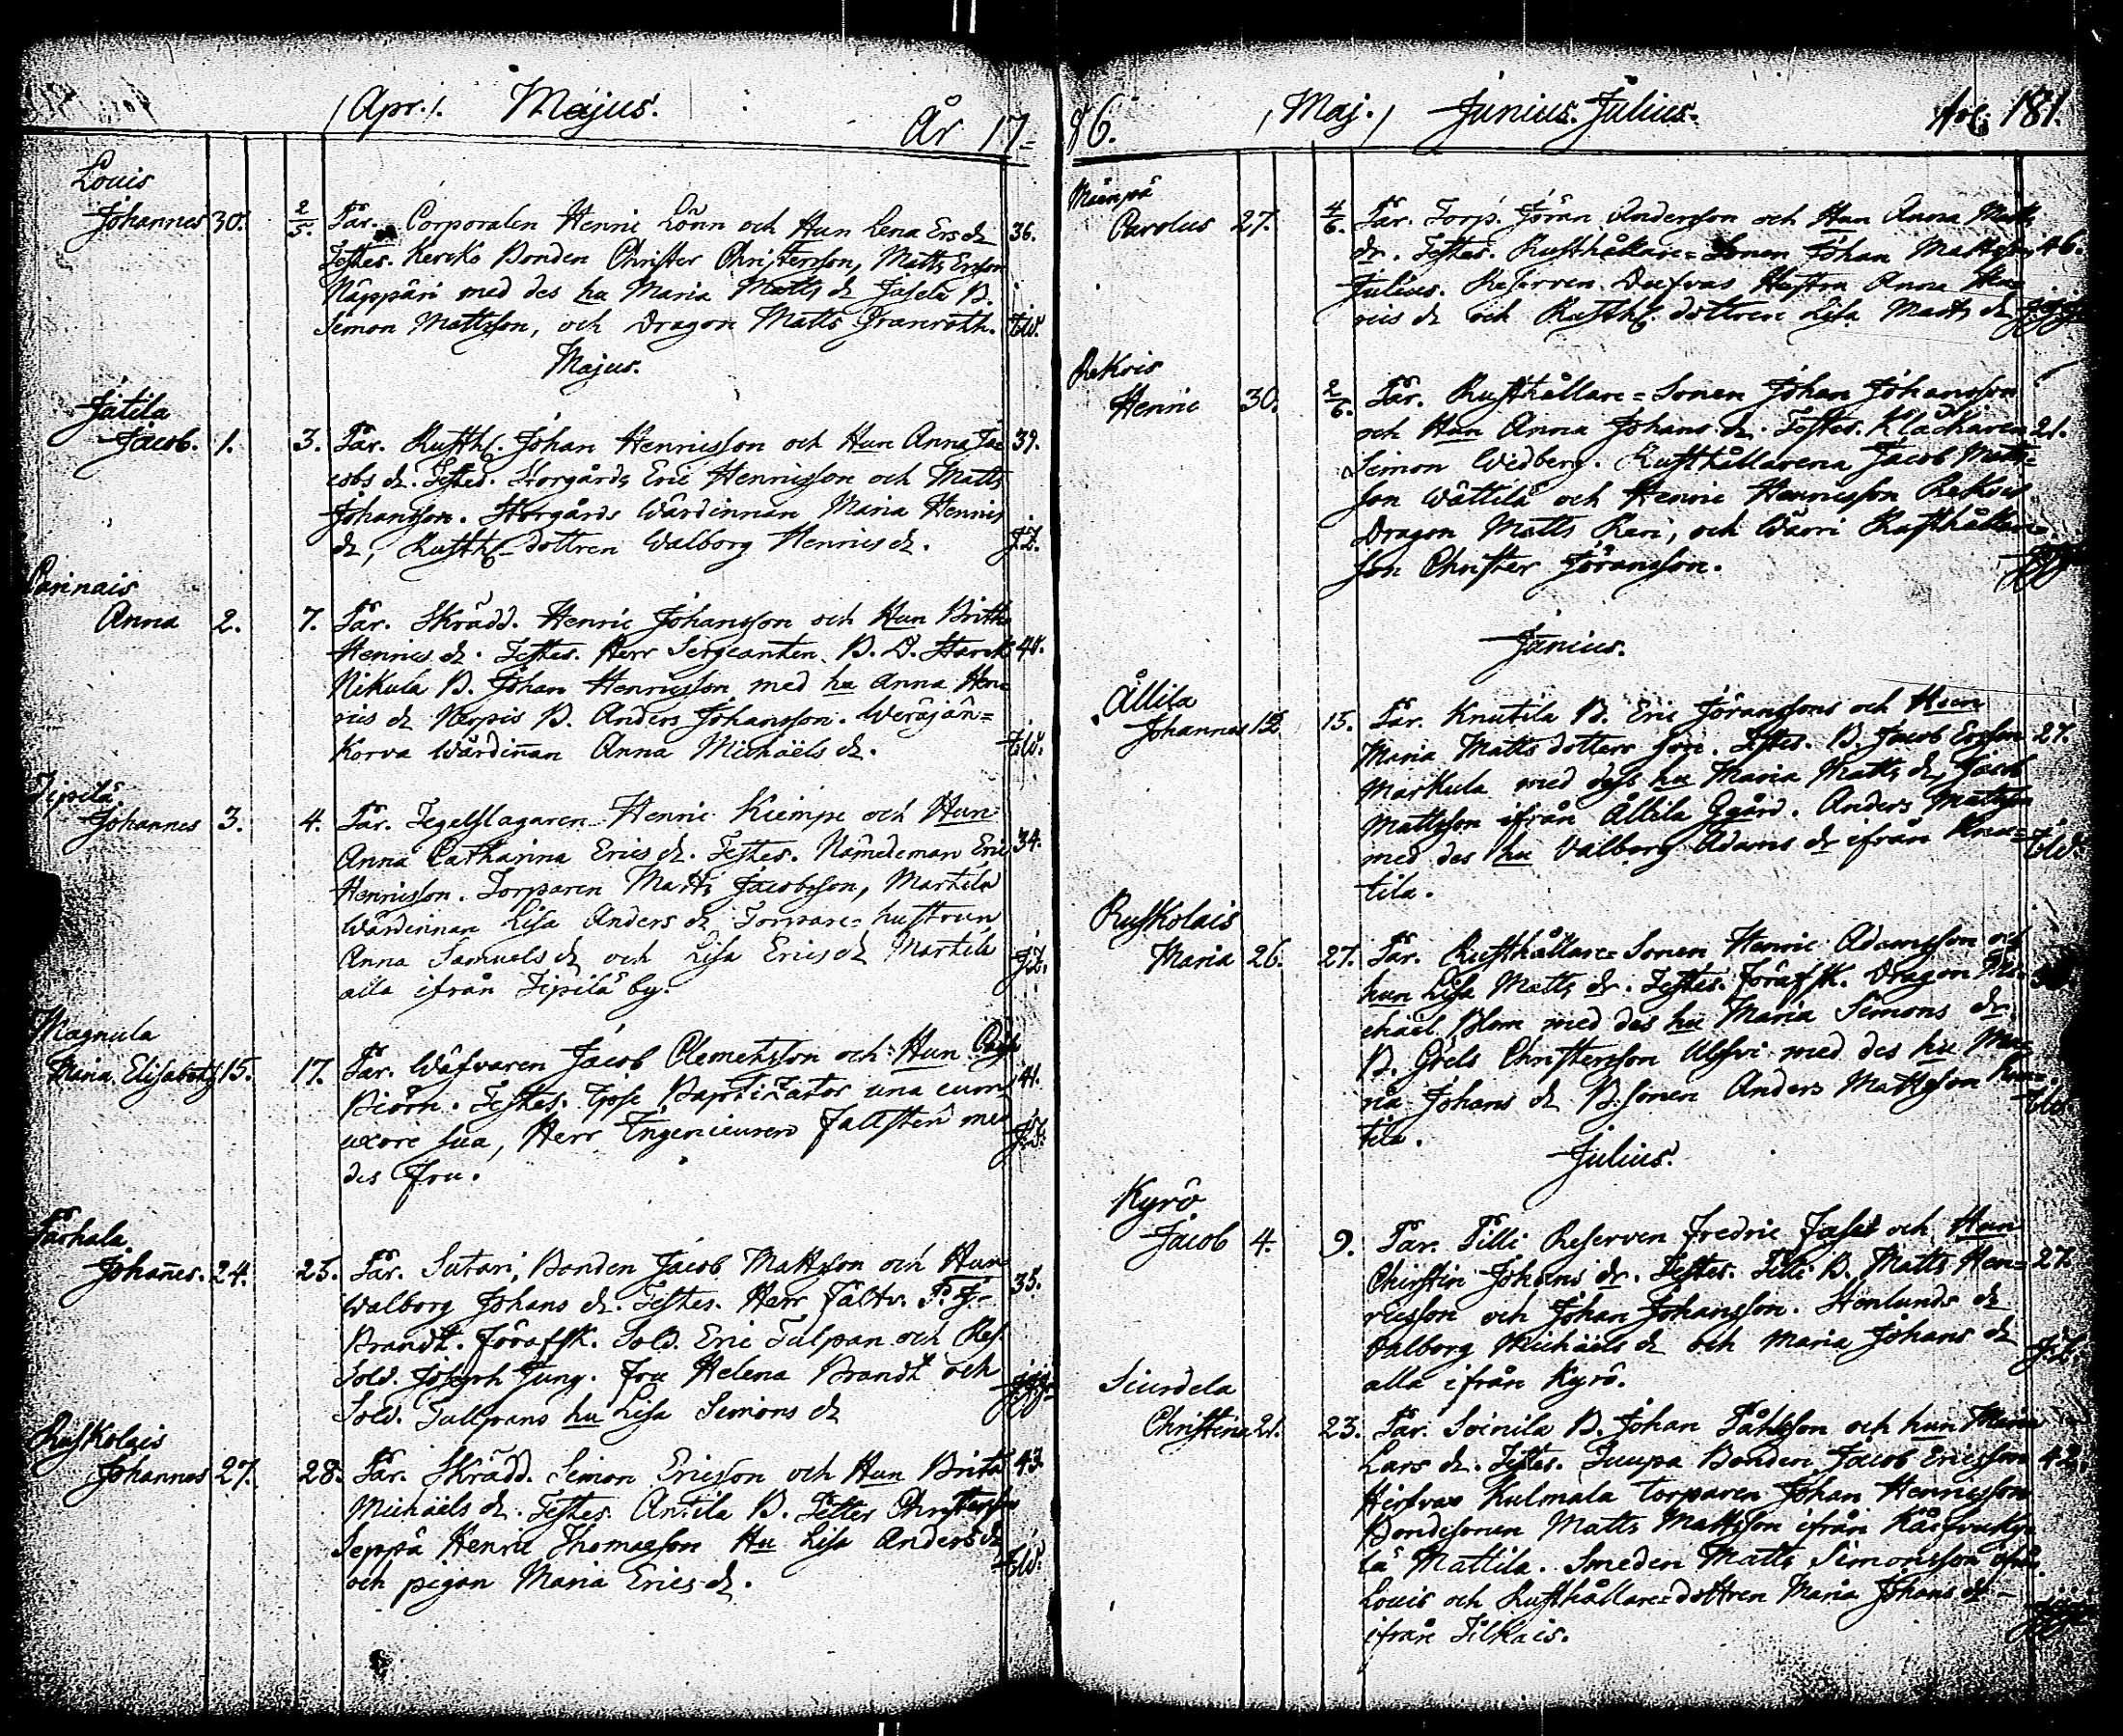 (Apr.). Majus.
År 17=
Louis
Johannes 30. 2/5. Par. Corporalen Henric Lönn och Hun Lena Ers dr 36.
Testes. Kercko Bonden Christer Christersson, Matts Ersson
Näppäri med des hu Maria Matts dr Jasela B.
Simon Mattsson, och Dragon Matts Granroth.
Majus.
Jätila
Jacob. 1. 3. Par. Rusth. Johan Henricsson och Hun Anna Ja= 39.
cobs dr. Testes. Storgårds Eric Henricsson och Matts
Johansson. Storgårds Wärdinnan Maria Henrics
dr, Rusth. dottren Walborg Henrics dr. J.L.
Carinais
Anna 2. 7. Par. Skrädd. Henric Johansson och Hun Britha
Henrics dr. Testes. Herr Sergeanten B. D. Starck 40.
Nikula B. Johan Henricsson med hu Anna Hen=
rics dr Karpis B. Anders Johansson. Weräjän=
Korva Wärdinnan Anna Michaëls dr.
Tipilä
Johannes 3. 4. Par. Tegelslagaren Henric Kiempe och Hun
Anna Catharina Erics dr. Testes. Nämdeman Eric 34.
Henricsson. Torparen Matts Jacobsson, Martila
Wärdinnan Lisa Anders dr Torpare=hustrun
Anna Samuels dr och Lisa Erics dr Martila
alla ifrån Tipilä by. J.L.
Magnula
Maria Elisabeth 15. 17. Par. Wäfvaren Jacob Clemetsson och Hun Caisa
Biörn. Testes. Ipse Baptizator una cum 41.
uxore sua, Herr Ingenieuren Fallsten med
des fru.
Pärhala
Johannes. 24. 25. Par. Sutari, Bonden Jacob Mattsson och Hun
Walborg Johans dr. Testes. Herr Fältv. P. J. 35.
Brandt. Föräfsk. Sold. Eric Tulpan och Res.
Sold. Joseph Jung. fru Helena Brandt och
Sold. Tullpans hu Lisa Simons dr
Ruskolais
Johannes 27. 28. Par. Skrädd. Simon Ericsson och Hun Brita 43.
Michaëls dr. Testes. Antila B. Petter Christersson
Seppä Henric Thomasson Hu Lisa Anders dr
och pigan Maria Erics dr.
86. (Maj.) Junius. Julius. 181.
Mäenpä
Carolus 27. 4/6. Par. Torp. Jöran Andersson och Hun Anna Matts
dr. Testes. Rusthållare=Sonen Johan Mattsson 46.
Julius. Reserven Dufvas Hustru Anna Hen=
rics dr och Rusth. dottren Lisa Matts dr
Rekois
Henric 30. 2/6. Par. Rusthållare=Sonen Johan Johansson
och Hun Anna Johans dr. Testes. Klåckaren 21.
Simon Widberg. Rusthållarena Jacob Matts=
son Wättilä och Henric Henricsson Rekois.
Dragon Matts Reri, och Wärri Rusthållare=
son Christer Jöransson.
Junius.
Ållila
Johannes 12 15. Par. Knutila B. Eric Jöranssons och Hun
Maria Matts dotters son. Testes. B. Jacob Ersson 27.
Markula med dess hu Maria Matts dr, Jacob
Mattsson ifrån Ållila Ggård. Anders Mattsson
med des hu Valborg Adams dr ifrån Knu=
tila.
Ruskolais
Maria 26. 27. Par. Rusthållare=Sonen Henric Adamsson och
hun Lisa Matts dr. Testes. Föräfsk. Dragon Mi=
chaël Blom med des hu Maria Simons dr.
B. Grels Christersson Ulssvi med des hu Ma=
ria Johans dr B. sonen Anders Mattsson
tila.
Julius.
Kyrö
Jacob 4. 9. Par. Pilli Reserven Fredric Fast och Hun
Christin Johans dr. Testes. Pilli B. Matts Hen= 27.
ricsson och Johan Johansson. Stenlunds dr
Valborg Michaëls dr och Maria Johans dr
alla ifrån Kyrö. J.L.
Siurdela
Christina 21. 23. Par. Soinila B. Johan Påhlsson och hun Maria
Lars dr. Testes. Juupa Bonden Jacob Ericsson 42.
Hirfvas Kulmala torparen Johan Henricsson
Bondesonen Matts Mattsson ifrån
lä Mattila. Smeden Matts Simonsson ifrån
Louis och Rusthållare=dottren Maria Johans dr
ifrån Tilkais.